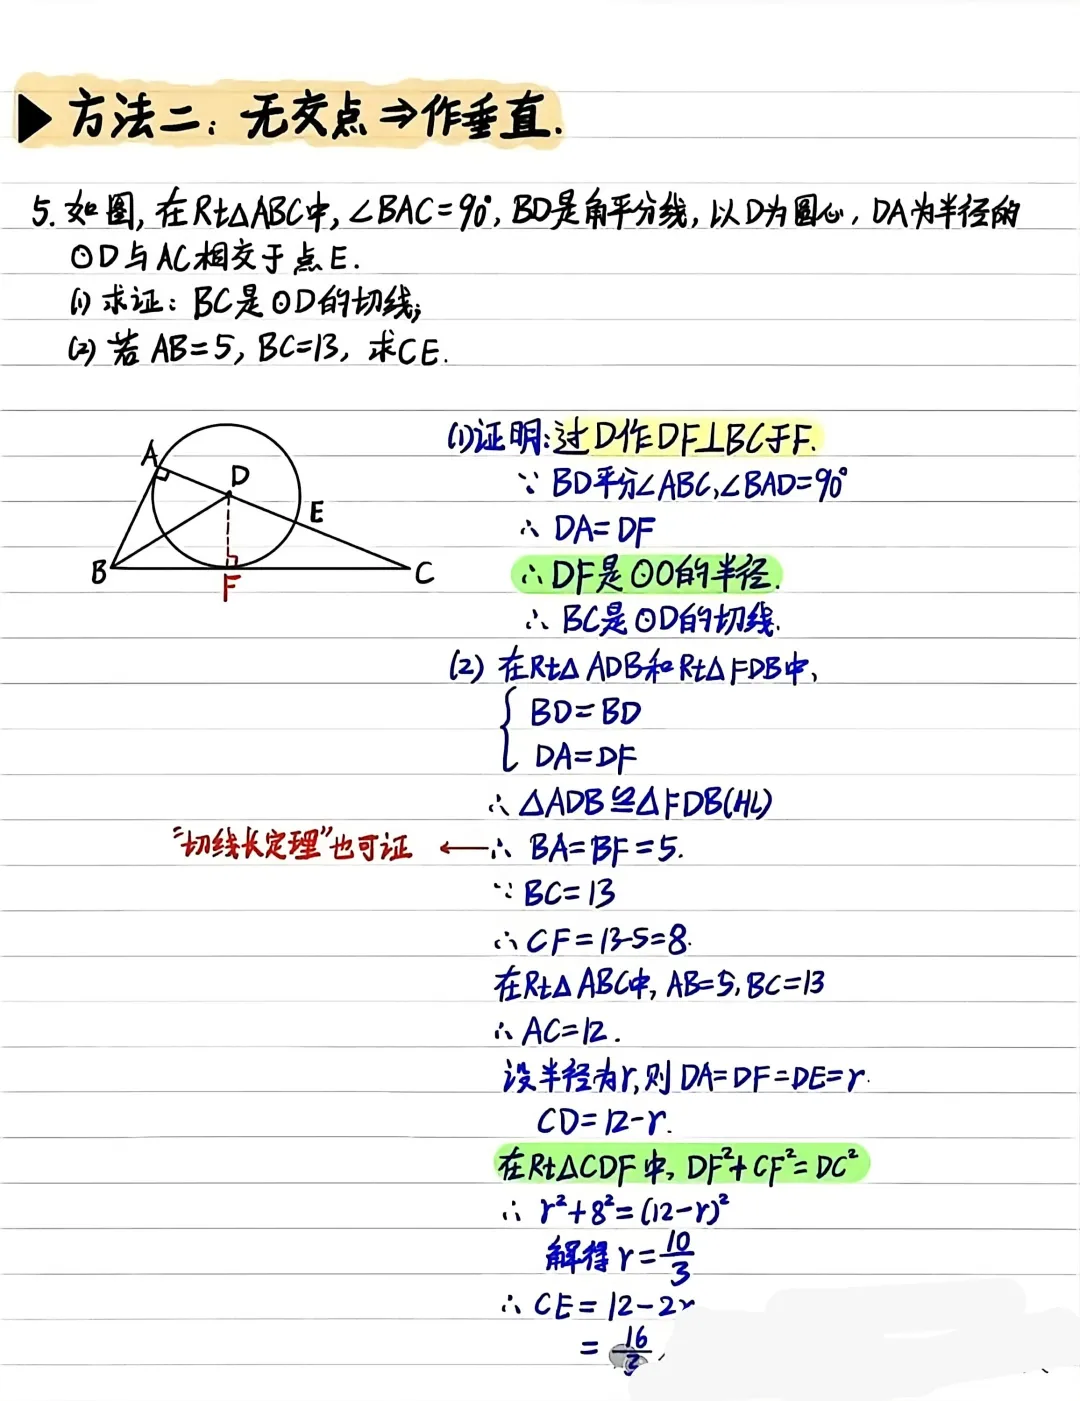 ▶方法二：无交点⇒作垂直.
5. 如图, 在Rt△ABC中, ∠BAC=90°, BD是角平分线, 以D为圆心, DA为半径的
⊙D与AC相交于点E.
(1) 求证: BC是⊙D的切线;
(2) 若AB=5, BC=13, 求CE.
A
D
E
B
F
C
(1)证明:过D作DF⊥BC于F.
∵ BD平分∠ABC,∠BAD=90°
∴ DA=DF
∴DF是⊙O的半径.
∴ BC是⊙D的切线.
(2) 在Rt△ADB和Rt△FDB中,
BD=BD
DA=DF
∴ △ADB≌△FDB(HL)
"切线长定理"也可证 ←∴ BA=BF=5.
∵ BC=13
∴ CF=13-5=8.
在Rt△ABC中, AB=5, BC=13
∴ AC=12.
设半径为r,则DA=DF=DE=r.
CD=12-r.
在Rt△CDF中, DF²+CF²=DC²
∴ r²+8²=(12-r)²
解得 r=10/3
∴ CE=12-2r
=16/3